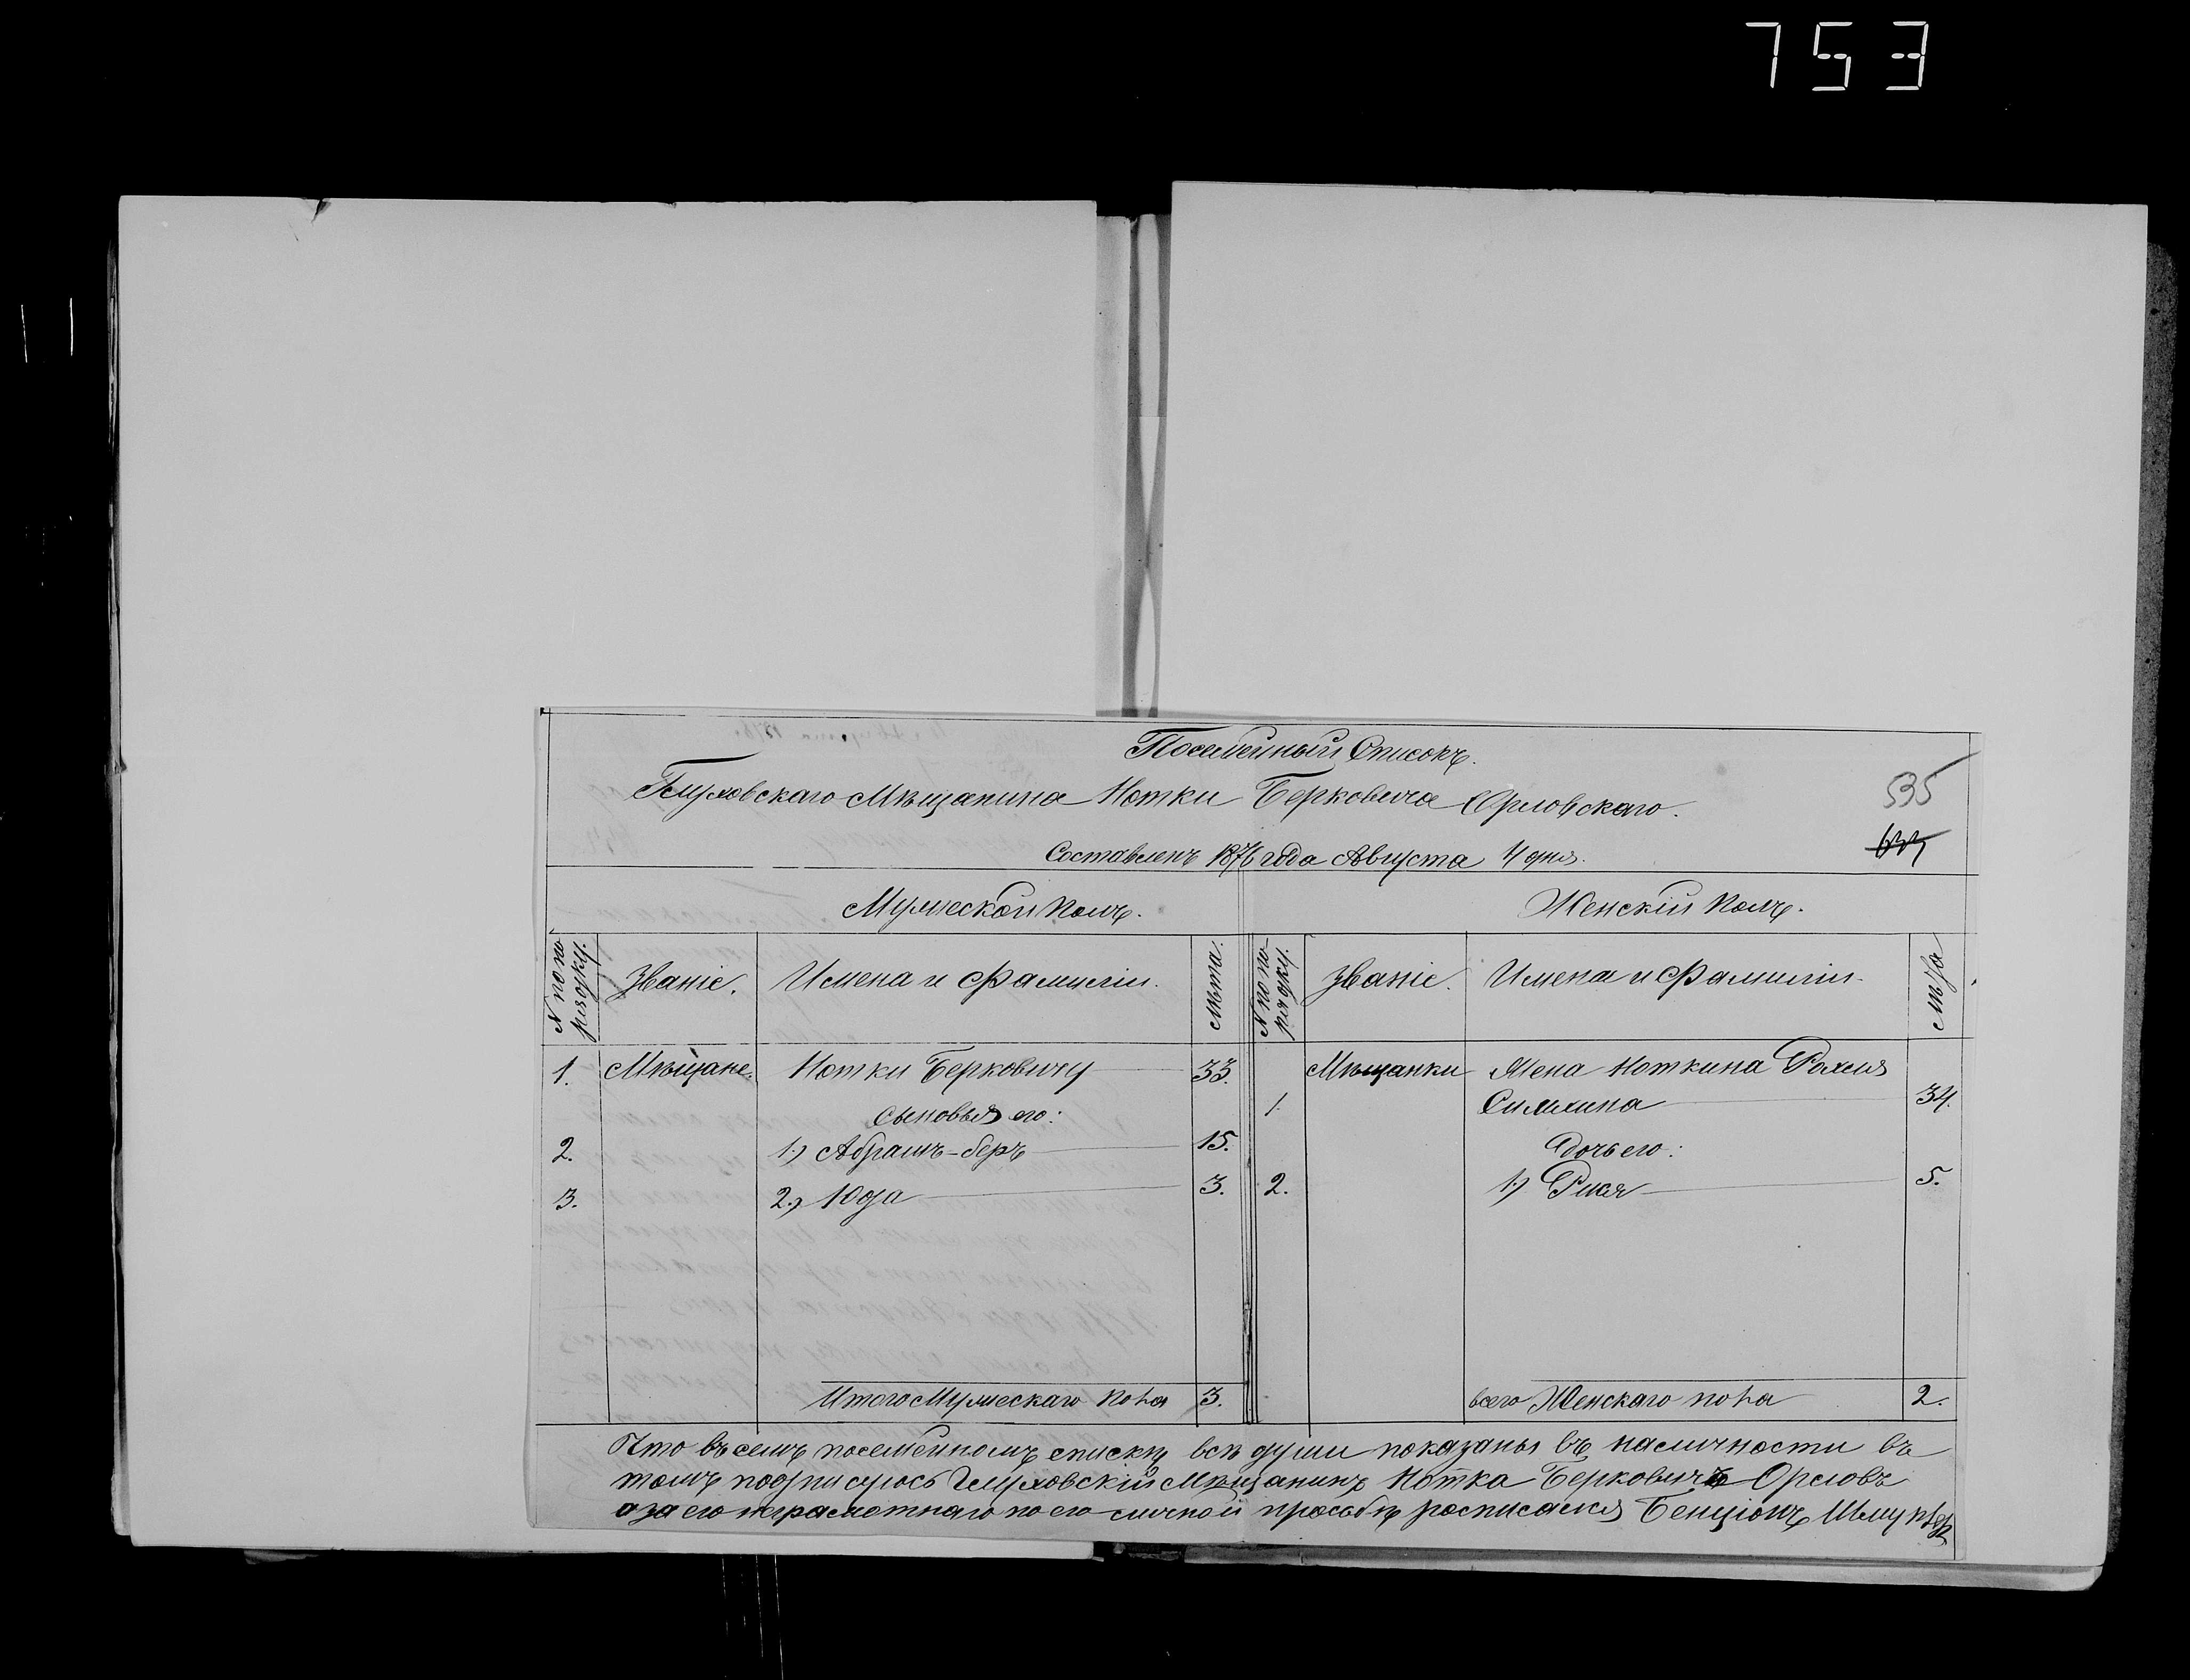 753
Посемейный Списокъ.
Глуховскаго Мѣщанина Нотки Берковича Орловскаго.
535
Составленъ 1876 года Августа 4 дня.
Мужеской Полъ.
Женскій Полъ.
N по по
рядку.
Званіе.
Имена и Фамиліи.
Лѣта.
N по по
рядку.
Званіе.
Имена и Фамиліи.
Лѣта
1. Мѣщане. Нотки Берковичу 33.
Мѣщанки Жена Ноткина Рохля
1. Симхина 34.
сыновья его:
Дочь его:
2. 1.) Абрамъ-беръ 15.
3. 2.) Юда 3.
2. 1.) 5.
Итого Мужескаго пола 3.
всего Женскаго пола 2.
Что въ семъ посемейномъ списку всѣ души показаны въ наличности въ
томъ подписуюсь Глуховскій Мѣщанинъ Нотка Берковичъ Орловъ
а за его неграмотнаго по его личной просьбѣ росписался Бенціонъ